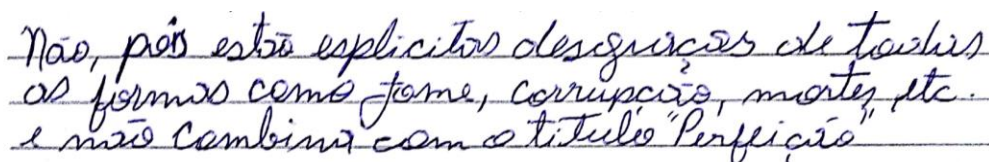 Não, pois estão esplicitos desgraças de todas
as formas como fome, corrupção, mortes, etc.
e não combina com o titulo "Perfeição"